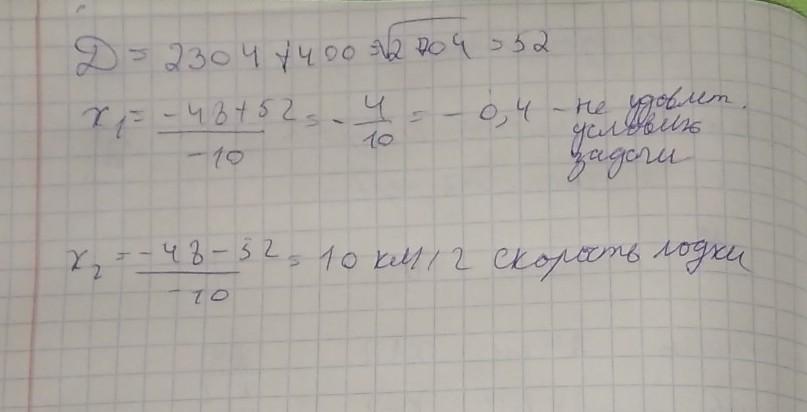 D = 2304 + 400 = √2704 = 52
x₁ = (-48+52)/(-10) = -4/10 = -0,4 - не удовлет.
условию
задачи
x₂ = (-48-52)/(-10) = 10 км/ч скорость лодки